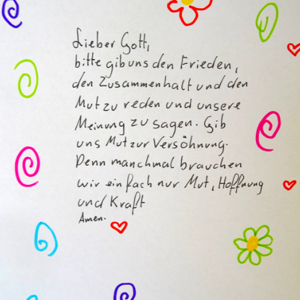 Lieber Gott,
bitte gib uns den Frieden,
den Zusammenhalt und den
Mut zu reden und unsere
Meinung zu sagen. Gib
uns Mut zur Versöhnung.
Denn manchmal brauchen
wir einfach nur Mut, Hoffnung
und Kraft
Amen.